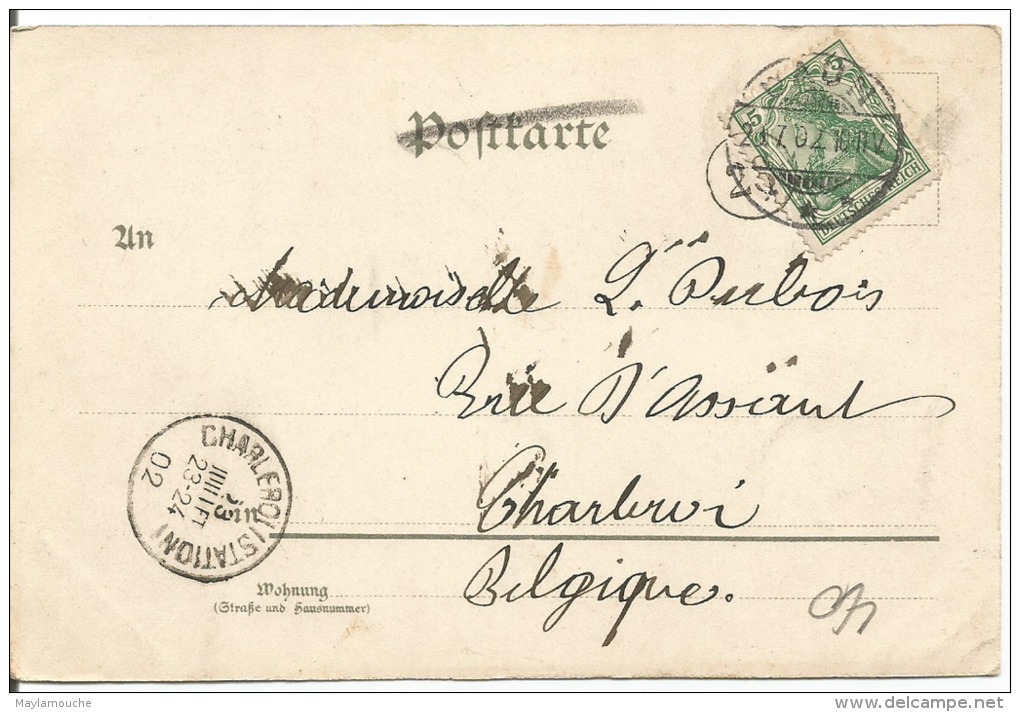 Postkarte
5
DEUTSCHES REICH
7.02.10-11V.
An
Mademoiselle L. Dubois
Rue D'Assaut
Charleroi
Belgique.
in
CHARLEROI (STATION)
23
JUILLET
23-24
02
Wohnung
(Straße und Hausnummer)
Maylamouche
delcampe.net